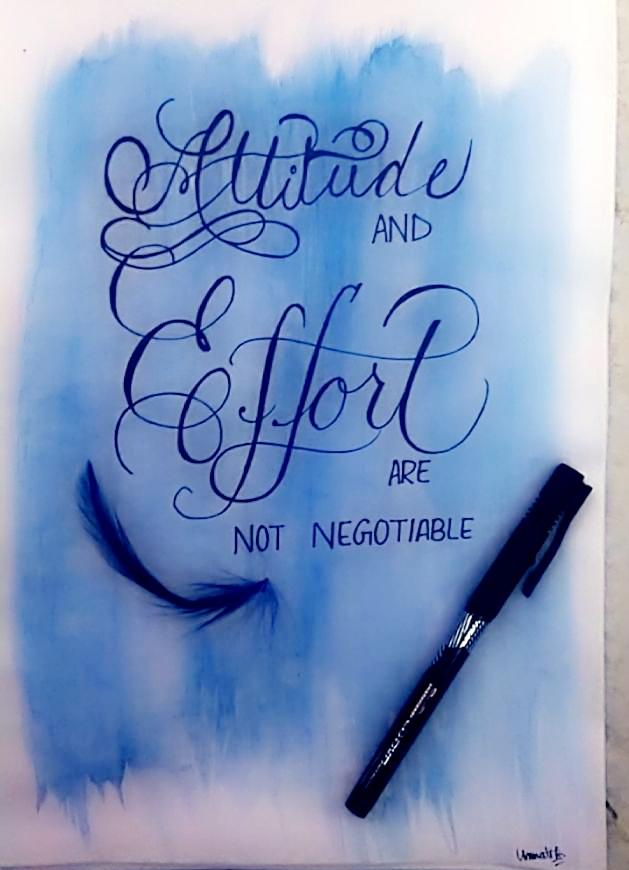 Attitude
AND
Effort
ARE
NOT NEGOTIABLE